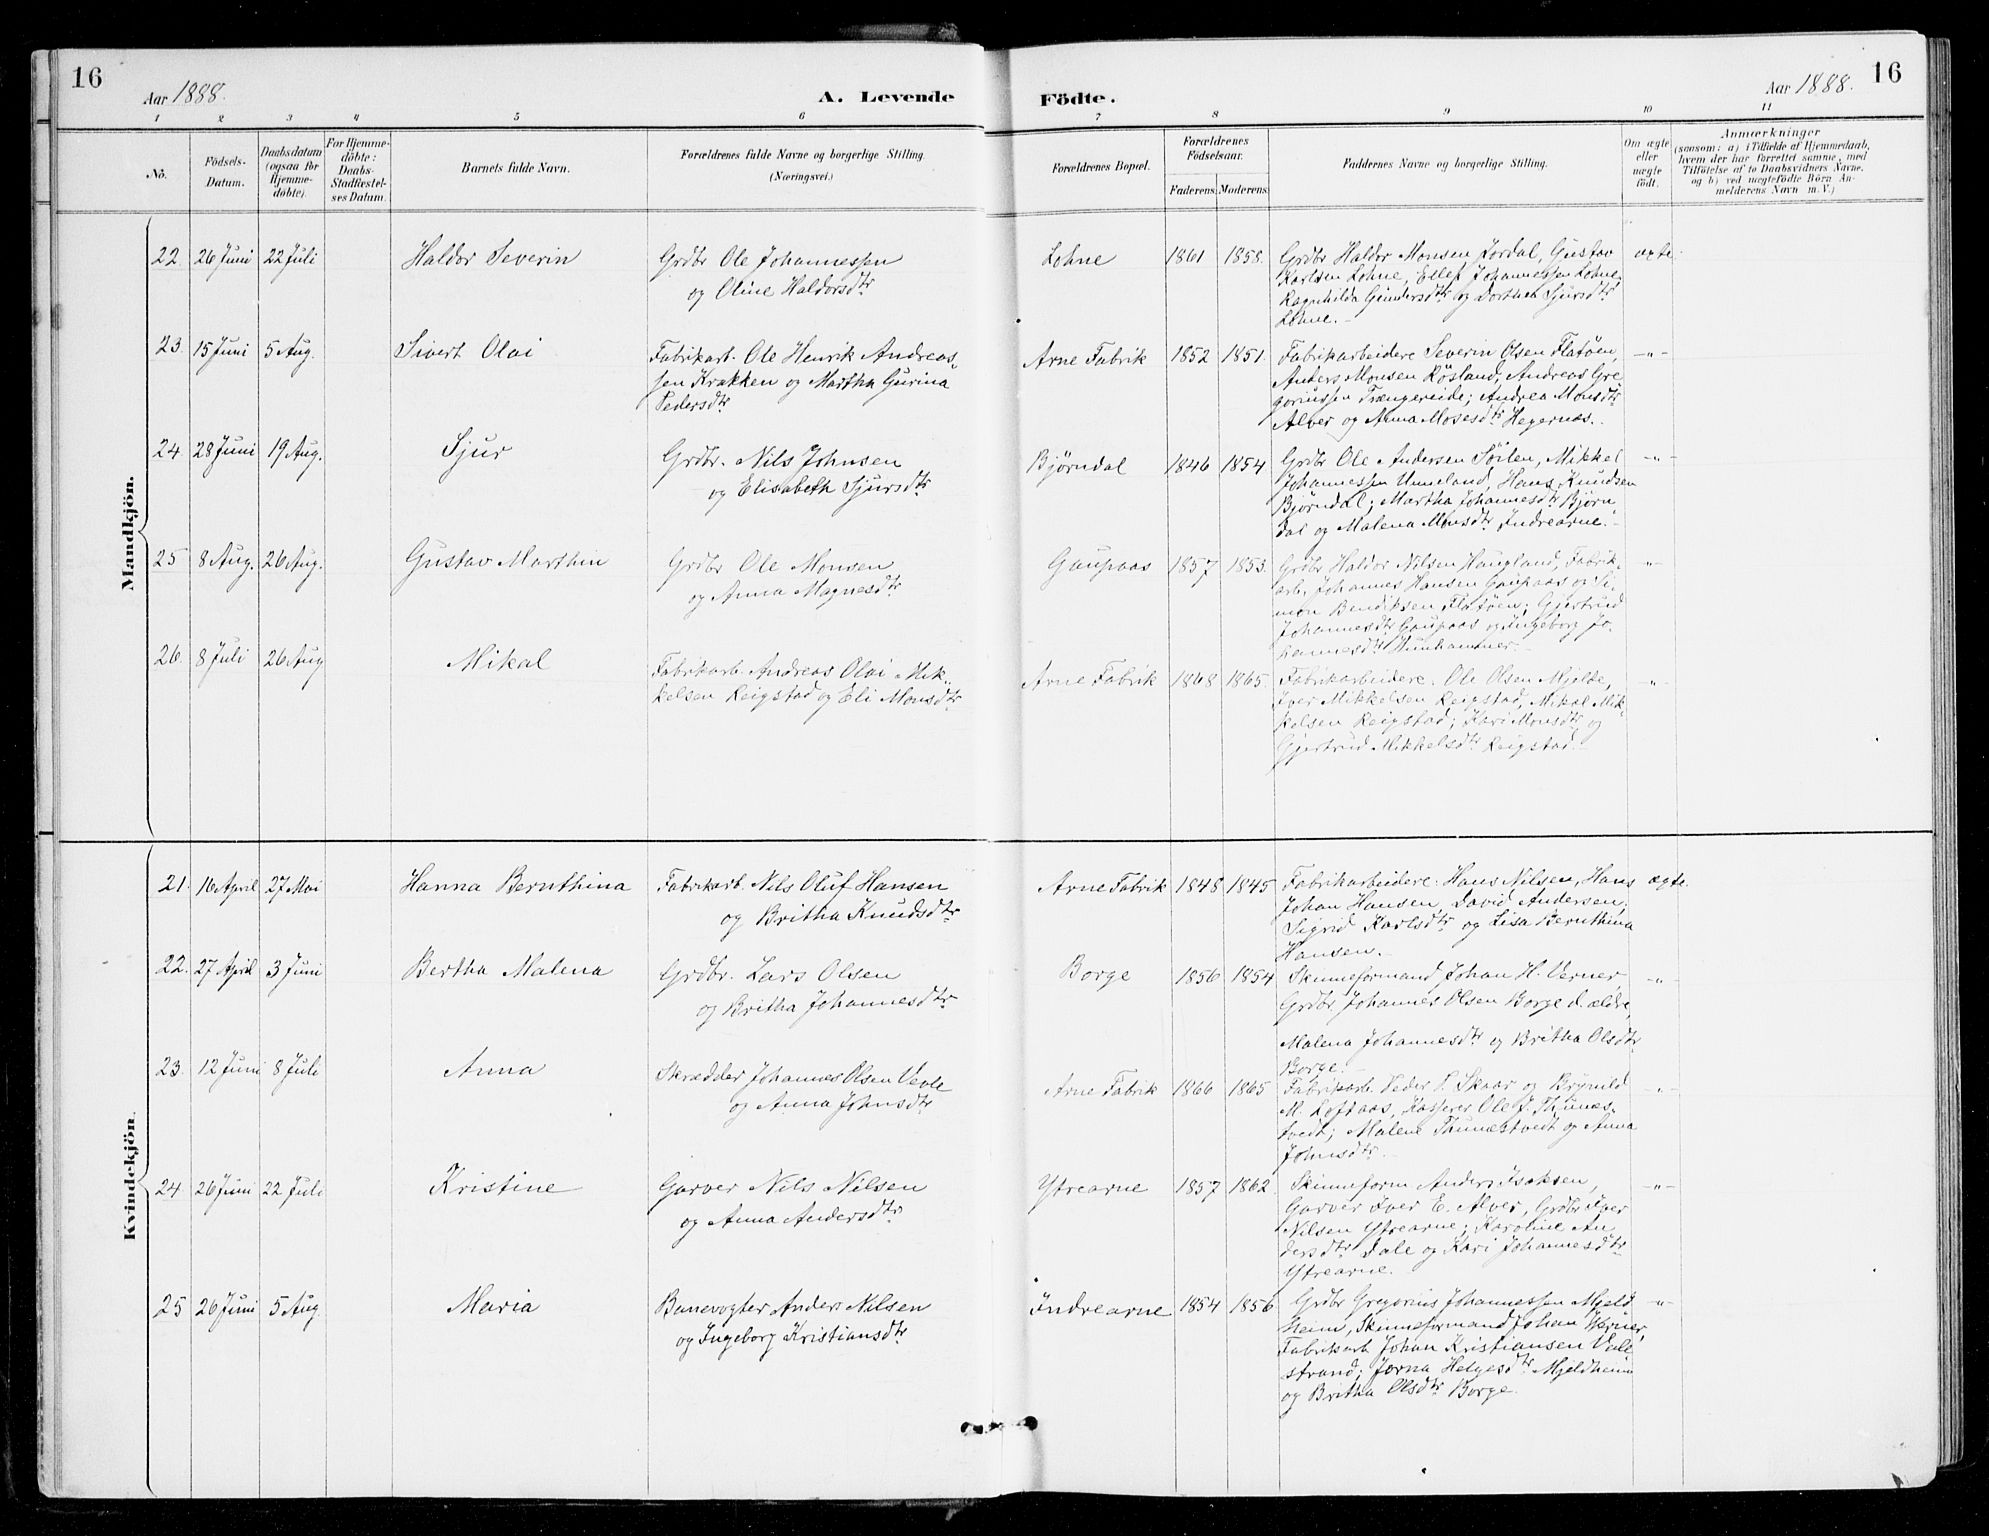 16
Aar 1888.
A. Levende
Födte.
Aar 1888.
16
1 2 3 4 5 6 7 8 9 10 11
No.
Födsels-
Datum.
Daabsdatum
(ogsaa for
Hjemme-
döbte).
For Hjemme-
döbte:
Daabs-
Stadfæstel-
ses Datum.
Barnets fulde Navn.
Forældrenes fulde Navne og borgerlige Stilling.
(Næringsvei.)
Forældrenes Bopæl.
Forældrenes
Födselsaar.
Faderens. Moderens.
Faddernes Navne og borgerlige Stilling.
Om ægte
eller
uægte
födt.
Anmærkninger
(saasom: a) i Tilfælde af Hjemmedaab,
hvem der har forrettet samme, med
Tilföielse af to Daabsvidners Navne,
og b) ved uægtefödte Börn An-
melderens Navn m. V.)
Mandkjön.
22. 26 Juni 22 Juli Haldor Severin
Grdbr Ole Johannessen
og Oline Haldorsdtr
Lohne 1861 1858.
Grdbr Haldor Monsen Lordal, Gustav
Karlsen Lohne, Ellef Johannessen Lohne,
Ragnhilda Gundersdtr og Dorthea Sjursdtr
Lohne.
ægte
23. 15 Juni 5 Aug. Sivert Olai
Fabrikarb. Ole Henrik Andreas-
sen Krakken og Martha Gurina
Pedersdtr
Arne Fabrik 1852 1851.
Fabrikarbeidere Severin Olsen Flatöen,
Anders Monsen Rösland, Andreas Gre
goriussen Trængereide; Andrea Monsdtr
Alver og Anna Mosesdtr Hegernæs.
-"-
24 28 Juni 19 Aug. Sjur
Grdbr. Nils Johnsen
og Elisabeth Sjursdtr
Bjørndal 1846 1854
Grdbr Ole Andersen Söilen, Mikkel
Johannessen Unneland, Hans Knudsen
Bjørndal; Martha Johannesdtr Bjørn
dal og Malena Monsdtr Indrearne.
-"-
25 8 Aug. 26 Aug. Gustav Marthin
Grdbr Ole Monsen
og Anna Magnesdtr
Gaupaas 1857 1853.
Grdbr Haldor Nilsen Haugland, Fabrik-
arb. Johannes Hansen Gaupaas og Si-
mon Bendiksen Flatöen; Gjertrud
Johannesdtr Gaupaas og Ingeborg Jo-
hannesdtr
-"-
26. 8 Juli 26 Aug Mikal
Fabrikarb. Andreas Olai Mik-
kelsen Reigstad og Eli Monsdtr
Arne Fabrik 1868 1865.
Fabrikarbeidere: Ole Olsen Mjelde,
Iver Mikkelsen Reigstad, Mikal Mik-
kelsen Reigstad; Kari Monsdtr og
Gjertrud Mikkelsdtr Reigstad.
-"-
Kvindekjön.
21. 16 April 27 Mai Hanna Bernthina
Fabrikarb. Nils Oluf Hansen
og Britha Knudsdtr
Arne Fabrik 1848 1845
Fabrikarbeidere: Hans Nilsen, Hans
Johan Hansen, David Andersen;
Sigrid Karlsdtr og Lisa Bernthina
Hansen.
ægte.
22. 27 April 3 Juni Bertha Malena
Grdbr. Lars Olsen
og Britha Johannesdtr
Borge 1856 1854
Skinneformand Johan H. Verner,
Grdbr. Johannes Olsen Borge d. ældre,
Malena Johannesdtr og Britha Olsdtr
Borge.
-"-
23. 12 Juni 8 Juli Anna
Skrædder Johannes Olsen Vevle
og Anna Johnsdtr
Arne Fabrik 1866 1865
Fabrikarb. Peder P. Skaar og Brynild
M. Loftaas, Kasserer Ole J. Thunes-
tvedt; Malene Thunestvedt og Anna
Johnsdtr
-"-
24 26 Juni 22 Juli Kristine
Garver Nils Nilsen
og Anna Andersdtr
Ytrearne 1857 1862.
Skinneform Anders Isaksen,
Garver Iver E. Alver, Grdbr Iver
Nilsen Ytrearne; Karoline An
dersdtr Dale og Kari Johannesdtr
Ytrearne.
-"-
25 26 Juni 5 Aug. Maria
Banevogter Anders Nilsen
og Ingeborg Kristiansdtr
Indrearne 1854 1856
Grdbr Gregorius Johannessen Mjeld
heim, Skinneformand Johan Werner,
Fabrikarb Johan Kristiansen Valle
strand; Jorna Helgesdtr Mjeldheim
og Britha Olsdtr Borge.
-"-